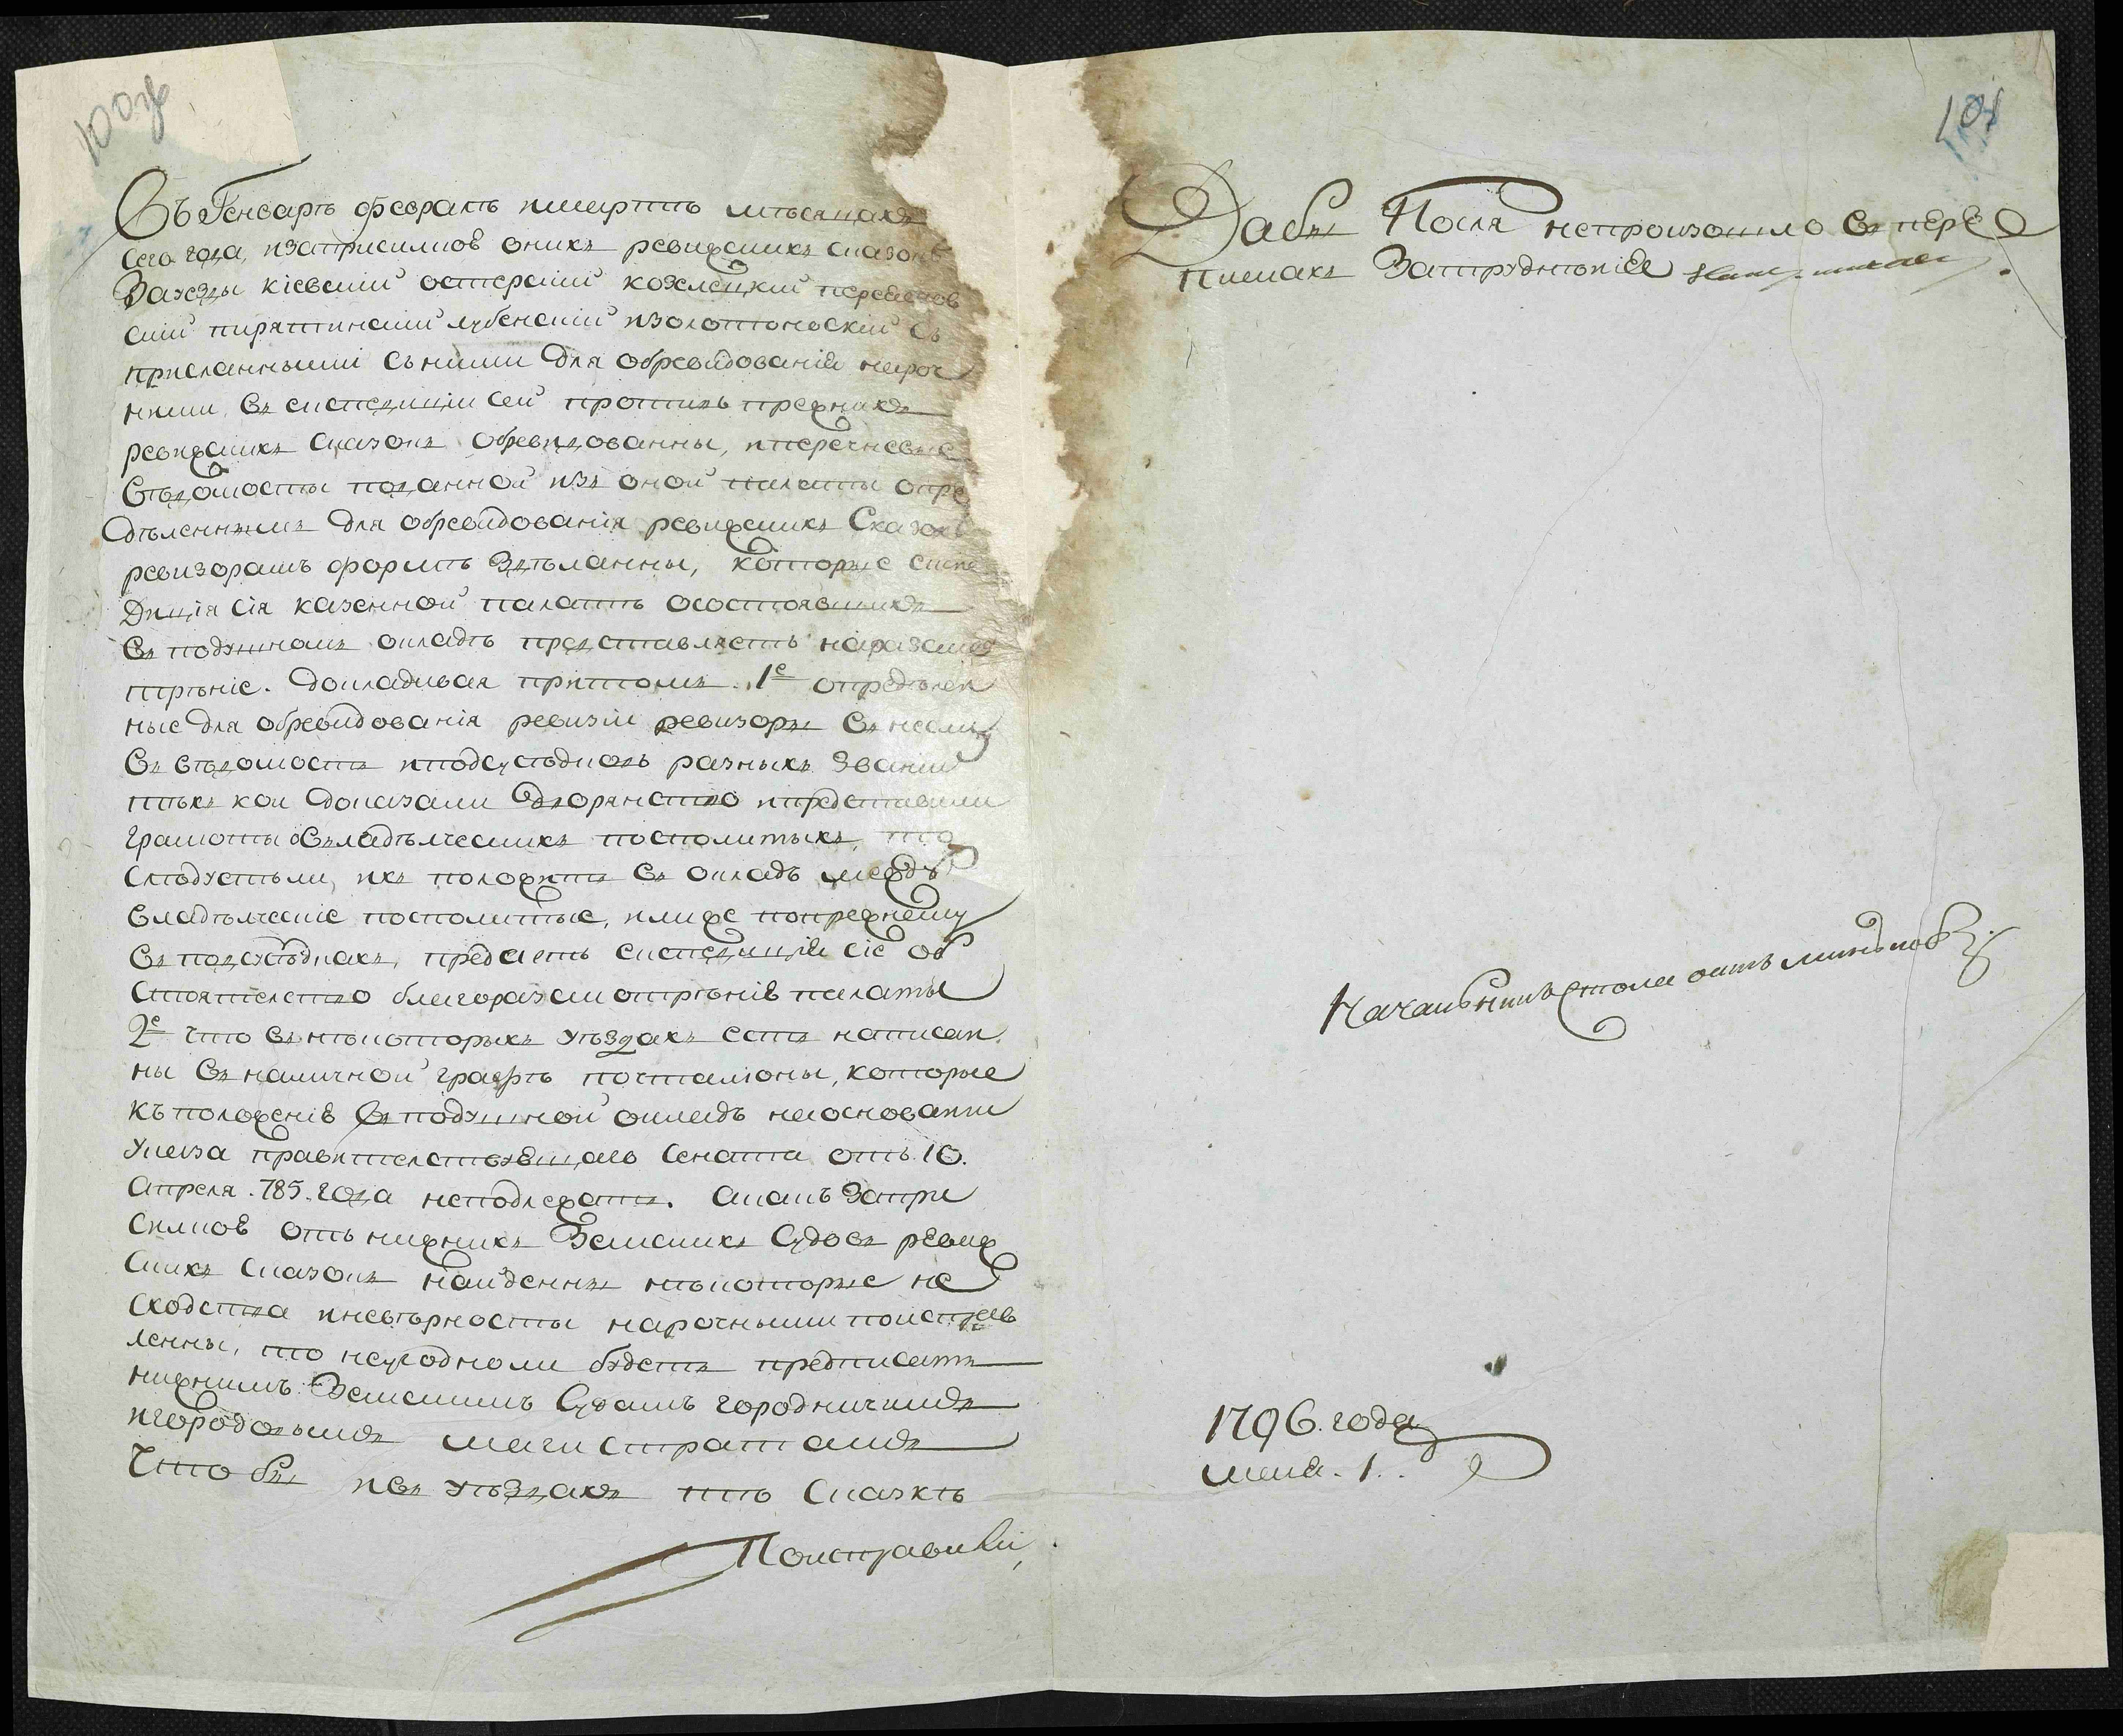 100 об
Въ Генваре феврале имарте месяцахъ
сего года, изаприсилков оных ревижских сказокъ
Зауезды кіевскій остерскій козелецкій переяслов
скій пирятинскій лубенскій изолотоноскій съ
присланными сними для обревидованія нароч
ними, въ експедиціи сей противъ прежних
ревижских сказокъ обревидованны, иперечневые
Ведомости поданной изъ оной палаты опре
деленнымъ для обревидованія ревижских Сказокъ
ревизорамъ форме зделанны, которые експе
диція сія казенной палате осостоявших
въ подушномъ окладе представляетъ наразсмо
трение. докладивая притомъ. 1е определен
ные для обревидованія ревизіи ревизоры внесли
въ ведомость иподсуседковъ разныхъ званій
техъ кои доказали дворянство ипредставили
грамоты овладелческихъ посполитыхъ, то
следуетъли, ихъ положить въ окладъ между
владелческіе посполитые, илиже попрежнему
въ подсуседкахъ, предаетъ експедиція сіе об
стоятелство благоразсмотренію палаты
2е что внекоторыхъ уездахъ есть написан
ны въ наличной графе почталіоны, которые
къ положенію въ подушной окладъ наосновании
указа правителствующаго Сената отъ 10.
апреля .785. года неподлежатъ. акакъ запри
силков отъ нижнихъ Земскихъ Судовъ ревиж
скихъ сказокъ найденны некоторые не
сходства иневерности нарочными поисправ
ленны, то неугодноли будетъ предписать
нижнимъ Земскимъ Судамъ городничимъ
игородовымъ магистратамъ
Чтобы ивъ уездахъ те сказке
Поисправили
101
Дабы После непроизошло въ пере
пискахъ Затрудненіе
Началникъ стола
1796. года
маія. 1.